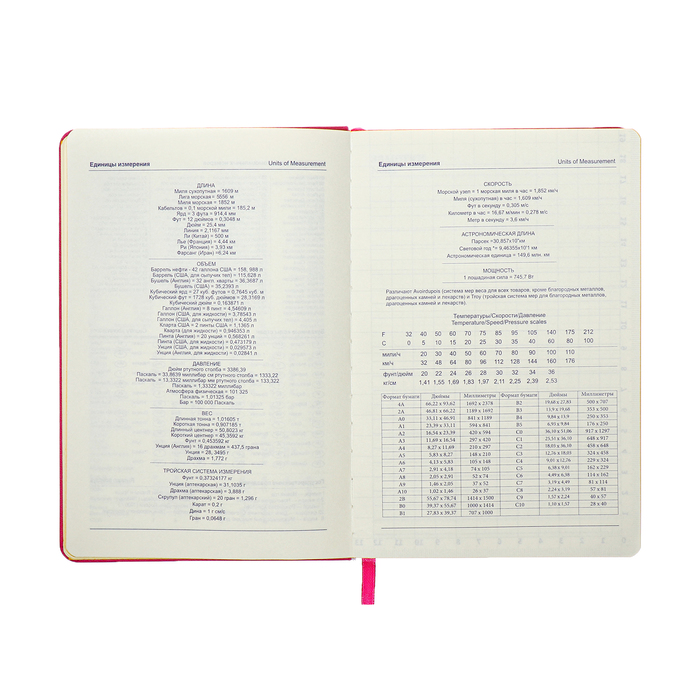 Единицы измерения Units of Measurement
ДЛИНА
Миля сухопутная = 1609 м
Лига морская = 5656 м
Миля морская = 1852 м
Кабельтов = 0,1 морской мили = 185,2 м
Ярд = 3 фута = 914,4 мм
Фут = 12 дюймов = 0,3048 м
Дюйм = 25,4 мм
Линия = 2,1167 мм
Ли (Китай) = 500 м
Лье (Франция) = 4,44 км
Ри (Япония) = 3,93 км
Фарсанг (Иран) =6,24 км
ОБЪЕМ
Баррель нефти - 42 галлона США = 158, 988 л
Баррель (США, для сыпучих тел) = 115,628 л
Бушель (Англия) = 32 англ. кварты = 36,3687 л
Бушель (США) = 35,2393 л
Кубический ярд = 27 куб. футов = 0,7645 куб. м
Кубический фут = 1728 куб. дюймов = 28,3169 л
Кубический дюйм = 0,163871 л
Галлон (Англия) = 8 пинт = 4,54609 л
Галлон (США, для жидкости) = 3,78543 л
Галлон (США, для сыпучих тел) = 4,405 л
Кварта США = 2 пинты США = 1,1365 л
Кварта (для жидкости) = 0,946353 л
Пинта (Англия) = 20 унций = 0,568261 л
Пинта (США, для жидкости) = 0,473179 л
Унция (США, для жидкости) = 0,029573 л
Унция (Англия, для жидкости) = 0,02841 л
ДАВЛЕНИЕ
Дюйм ртутного столба = 3386,39
Паскаль = 33,8639 миллибар см ртутного столба = 1333,22
Паскаль = 13,3322 миллибар мм ртутного столба = 133,322
Паскаль = 1,33322 миллибар
Атмосфера физическая = 101 325
Паскаль = 1,01325 бар
Бар = 100 000 Паскаль
ВЕС
Длинная тонна = 1,01605 т
Короткая тонна = 0,907185 т
Длинный центнер = 50,8023 кг
Короткий центнер = 45,3592 кг
Фунт = 0,453592 кг
Унция (Англия) = 16 драхмам = 437,5 грана
Унция = 28, 3495 г
Драхма = 1,772 г
ТРОЙСКАЯ СИСТЕМА ИЗМЕРЕНИЯ
Фунт = 0,37324177 кг
Унция (аптекарская) = 31,1035 г
Драхма (аптекарская) = 3,888 г
Скрупул (аптекарский) = 20 гран = 1,296 г
Карат = 0,2 г
Дина = 1 г см/с
Гран = 0,0648 г
Единицы измерения Units of Measurement
СКОРОСТЬ
Морской узел = 1 морская миля в час = 1,852 км/ч
Миля (сухопутная) в час = 1,609 км/ч
Фут в секунду = 0,305 м/с
Километр в час = 16,67 м/мин = 0,278 м/с
Метр в секунду = 3,6 км/ч
АСТРОНОМИЧЕСКАЯ ДЛИНА
Световой год = 9,46355х10¹² км
Астрономическая единица = 149,6 млн. км
МОЩНОСТЬ
1 лошадиная сила = 745,7 Вт
Различают Avoirdupois (система мер веса для всех товаров, кроме благородных металлов,
драгоценных камней и лекарств) и Troy (тройская система мер для благородных металлов,
драгоценных камней и лекарств).
Температуры/Скорости/Давление
Temperature/Speed/Pressure scales
F 32 40 50 60 70 75 85 95 105 140 175 212
C 0 5 10 15 20 25 30 35 40 60 80 100
мили/ч 20 30 40 50 60 70 80 90 100 110
км/ч 32 48 64 80 96 112 128 144 160 176
фунт/дюйм 20 22 24 26 28 30 32 34 36
кг/см 1,41 1,55 1,69 1,83 1,97 2,11 2,25 2,39 2,53
Формат бумаги Дюймы Миллиметры Формат бумаги Дюймы Миллиметры
4A 66,22 x 93,62 1692 x 2378 B2 19,68 x 27,83 500 x 707
2A 46,81 x 66,22 1189 x 1692 B3 13,9 x 19,68 353 x 500
A0 33,11 x 46,81 841 x 1189 B4 9,84 x 13,9 250 x 353
A1 23,39 x 33,11 594 x 841 B5 6,93 x 9,84 176 x 250
A2 16,54 x 23,39 420 x 594 C0 36,10 x 51,06 917 x 1297
A3 11,69 x 16,54 297 x 420 C1 25,51 x 36,10 648 x 917
A4 8,27 x 11,69 210 x 297 C2 18,03 x 25,51 458 x 648
A5 5,83 x 8,27 148 x 210 C3 12,76 x 18,03 324 x 458
A6 4,13 x 5,83 105 x 148 C4 9,01 x 12,76 229 x 324
A7 2,91 x 4,18 74 x 105 C5 6,38 x 9,01 162 x 229
A8 2,05 x 2,91 52 x 74 C6 4,49 x 6,38 114 x 162
A9 1,46 x 2,05 37 x 52 C7 3,19 x 4,49 81 x 114
A10 1,02 x 1,46 26 x 37 C8 2,24 x 3,19 57 x 81
2B 55,67 x 78,74 1414 x 1500 C9 1,57 x 2,24 40 x 57
B0 39,37 x 55,67 1000 x 1414 C10 1,10 x 1,57 28 x 40
B1 27,83 x 39,37 707 x 1000